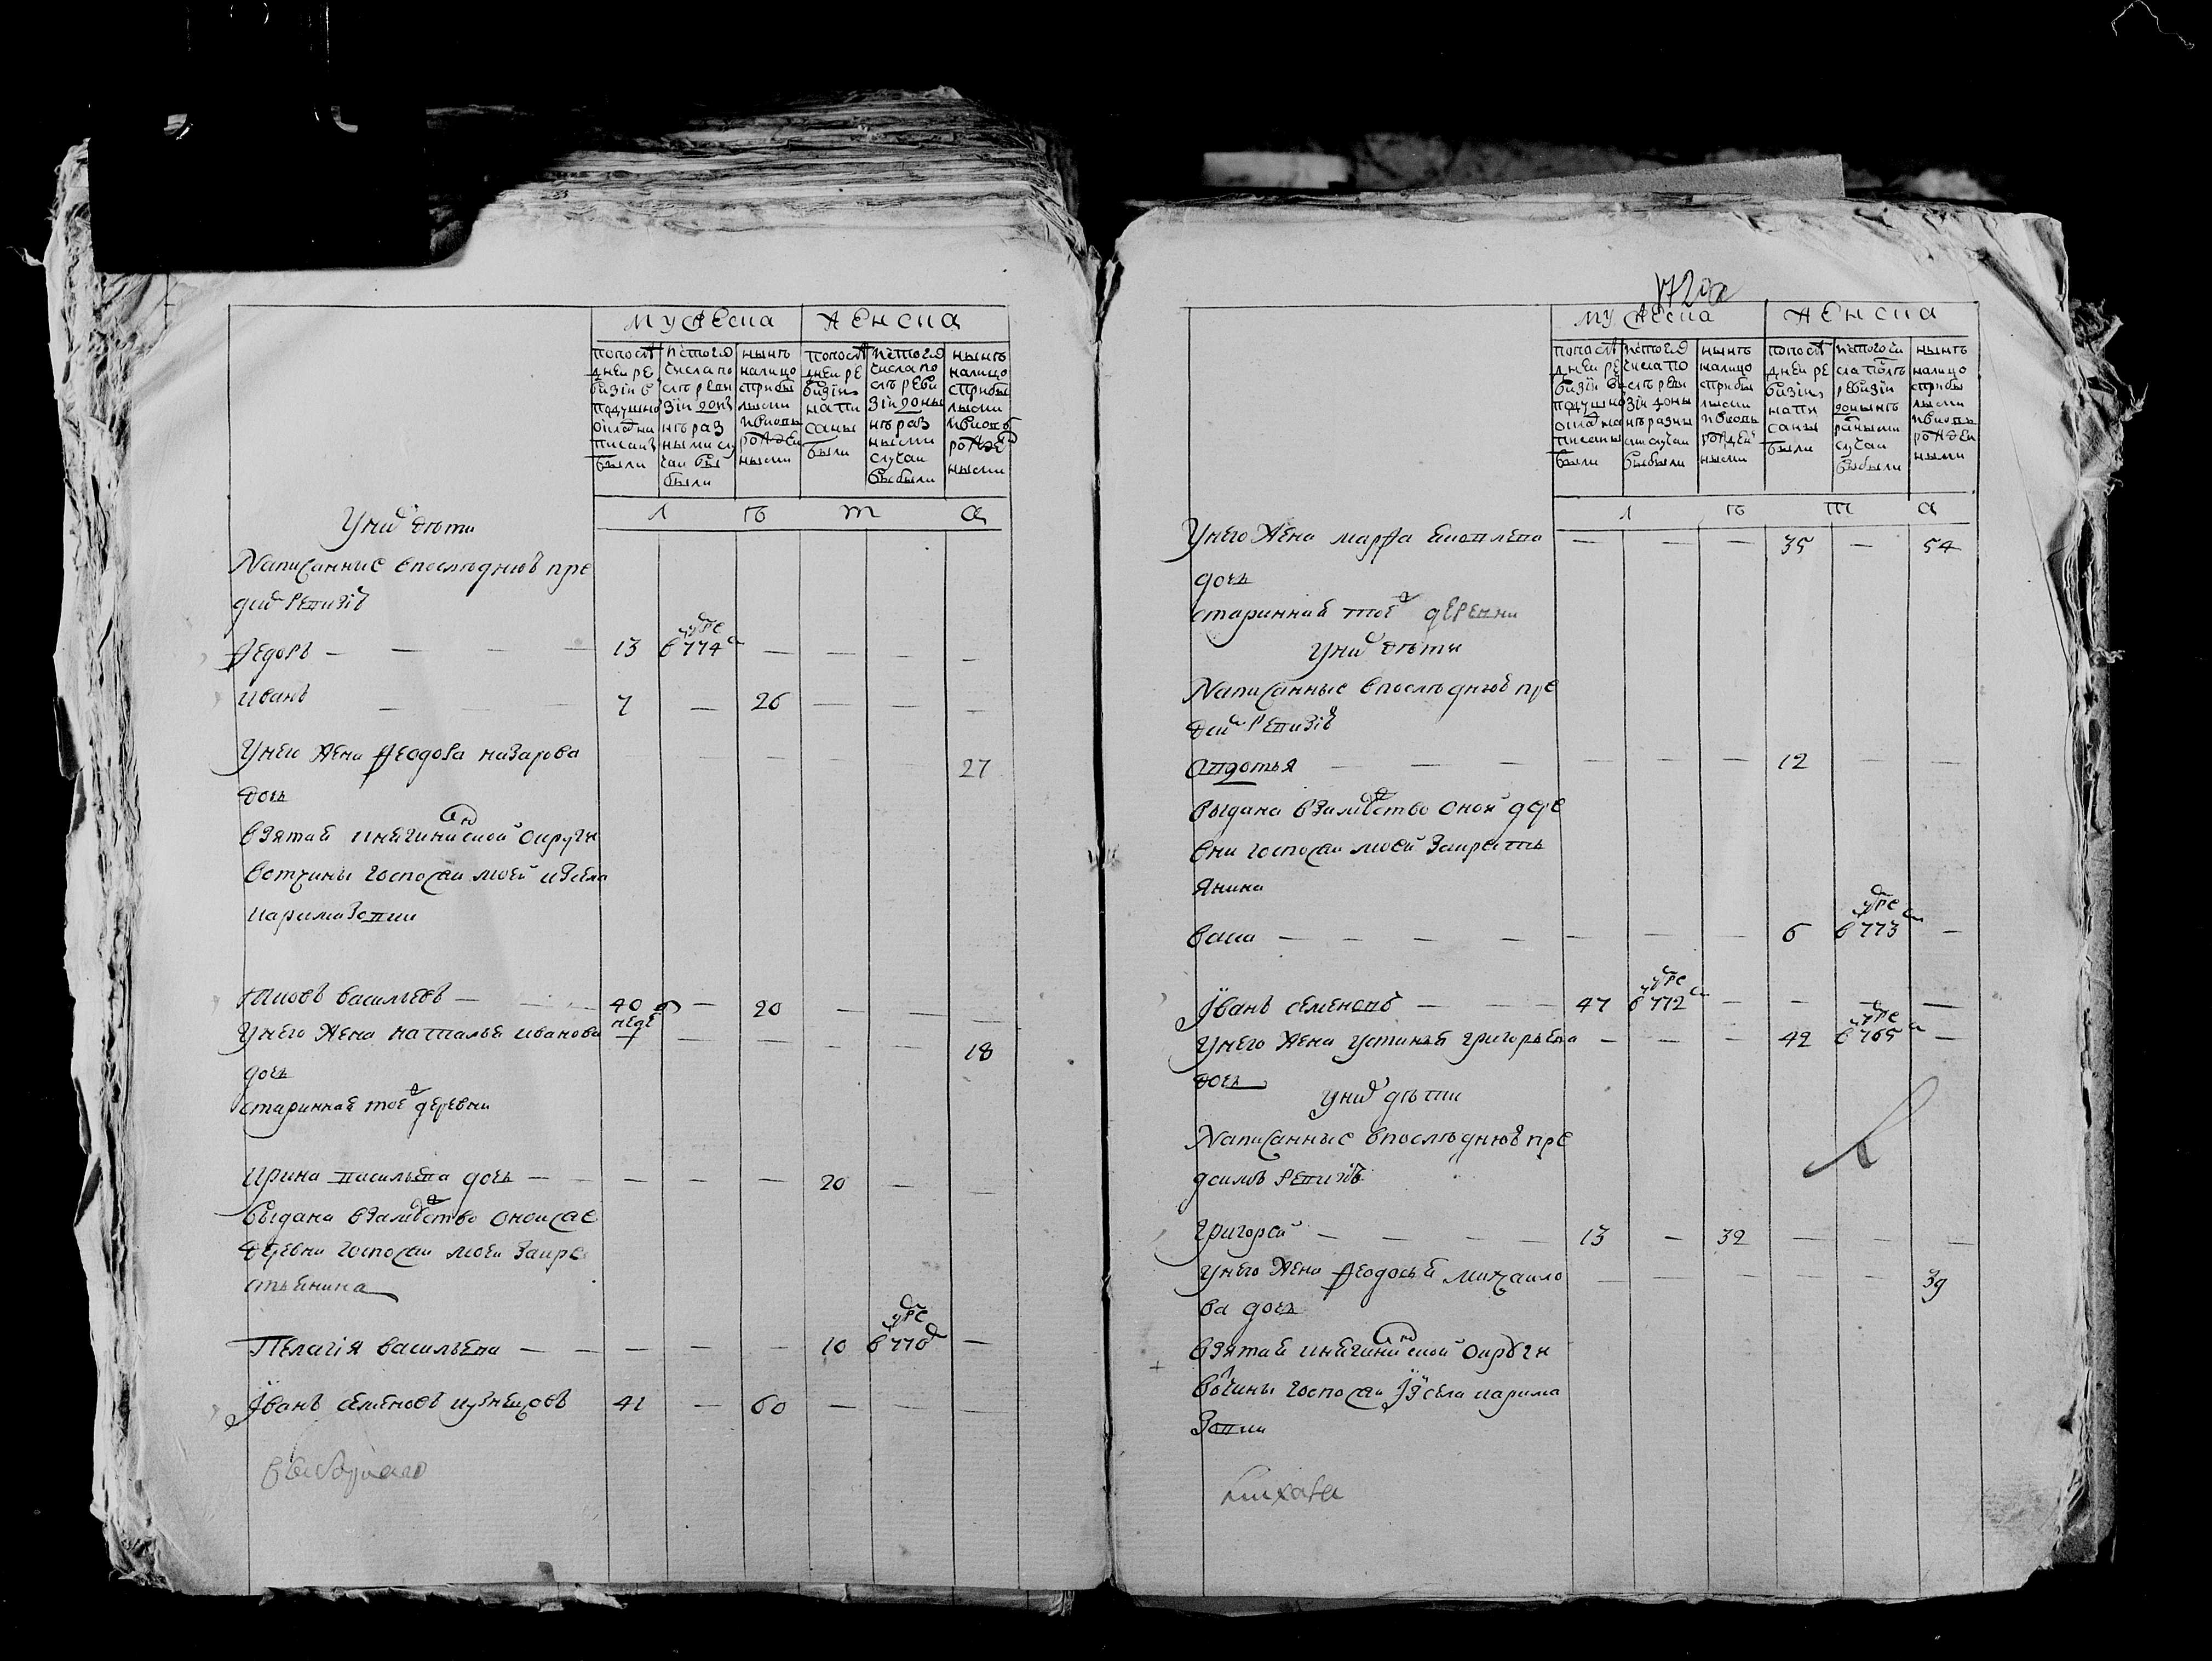 мужеска женска
попослѣ днеи ре визiи в подушно окладна писанъ были
ис того числа по слѣ реви зiи до нѣ нѣ раз ными слу чаи вы были
нынѣ налицо с прибы лыми и вновь рожден ными
попослѣ днеи ре визiи напи саны были
ис того числа по слѣ реви зiи до ны нѣ раз ными случаи выбыли
нынѣ налицо с прибы лыми и вновь рожден ными
л ѣ т а
у них дѣти
написанные в последнюю пре
дих ревизiю
Ѳедоръ — — — — 13 в 774 — — — —
иванъ — — — 7 — 26 — — —
у нево жена Ѳеодора назарова — — — — 27
дочь
взятая инсагинской округи
вотчины господ моей из села
кармазопки
яковъ васильевъ — 40 — 20 — — —
неде
у него жена наталья иванова — — — — — 18
дочь
старинная тоеж деревни
ирина васильева дочь — — — — 20 — —
выдана в замужство оной же
деревни господ моей за кре
стьянина
Пелагiя васильева — — — — — 10 в 770 —
Iванъ семеновъ кузнецовъ 41 — 60 — — —
мужеска женска
попослѣ днеи ре визiи в подушно окладна писаны были
ис того числа по слѣ реви зiи до ны нѣ разны ми случаи выбыли
нынѣ налицо с прибы лыми и вновь рожден ными
попослѣ днеи ре визiи напи саны были
ис того чи сла послѣ ревизiи до нынѣ разными случаи выбыли
нынѣ налицо с прибы лыми и вновь рожден ными
л ѣ т а
у него жена марфа яковлева — — — 35 — 54
дочь
старинная тоеж деревни
у них дѣти
написанные в последнюю пре
дих ревизiю
авдотья — — — — — — 12 — —
выдана в замужство оной дере
вни господ моей за кресть
янина
васа — — — — — — — 6 в 773 —
Iванъ семеновъ — — — 47 в 772 — — — —
у него жена устинья григорьева — — — 42 в 765 —
дочь
у них дѣти
написанные в последнюю пре
дсимъ ревизiю
григорей — — — — 13 — 32 — — —
у него жена Ѳеодосья михайло — — — — — 39
ва дочь
взятая инсагинской округи
вотчины господ iз села карма
зопки